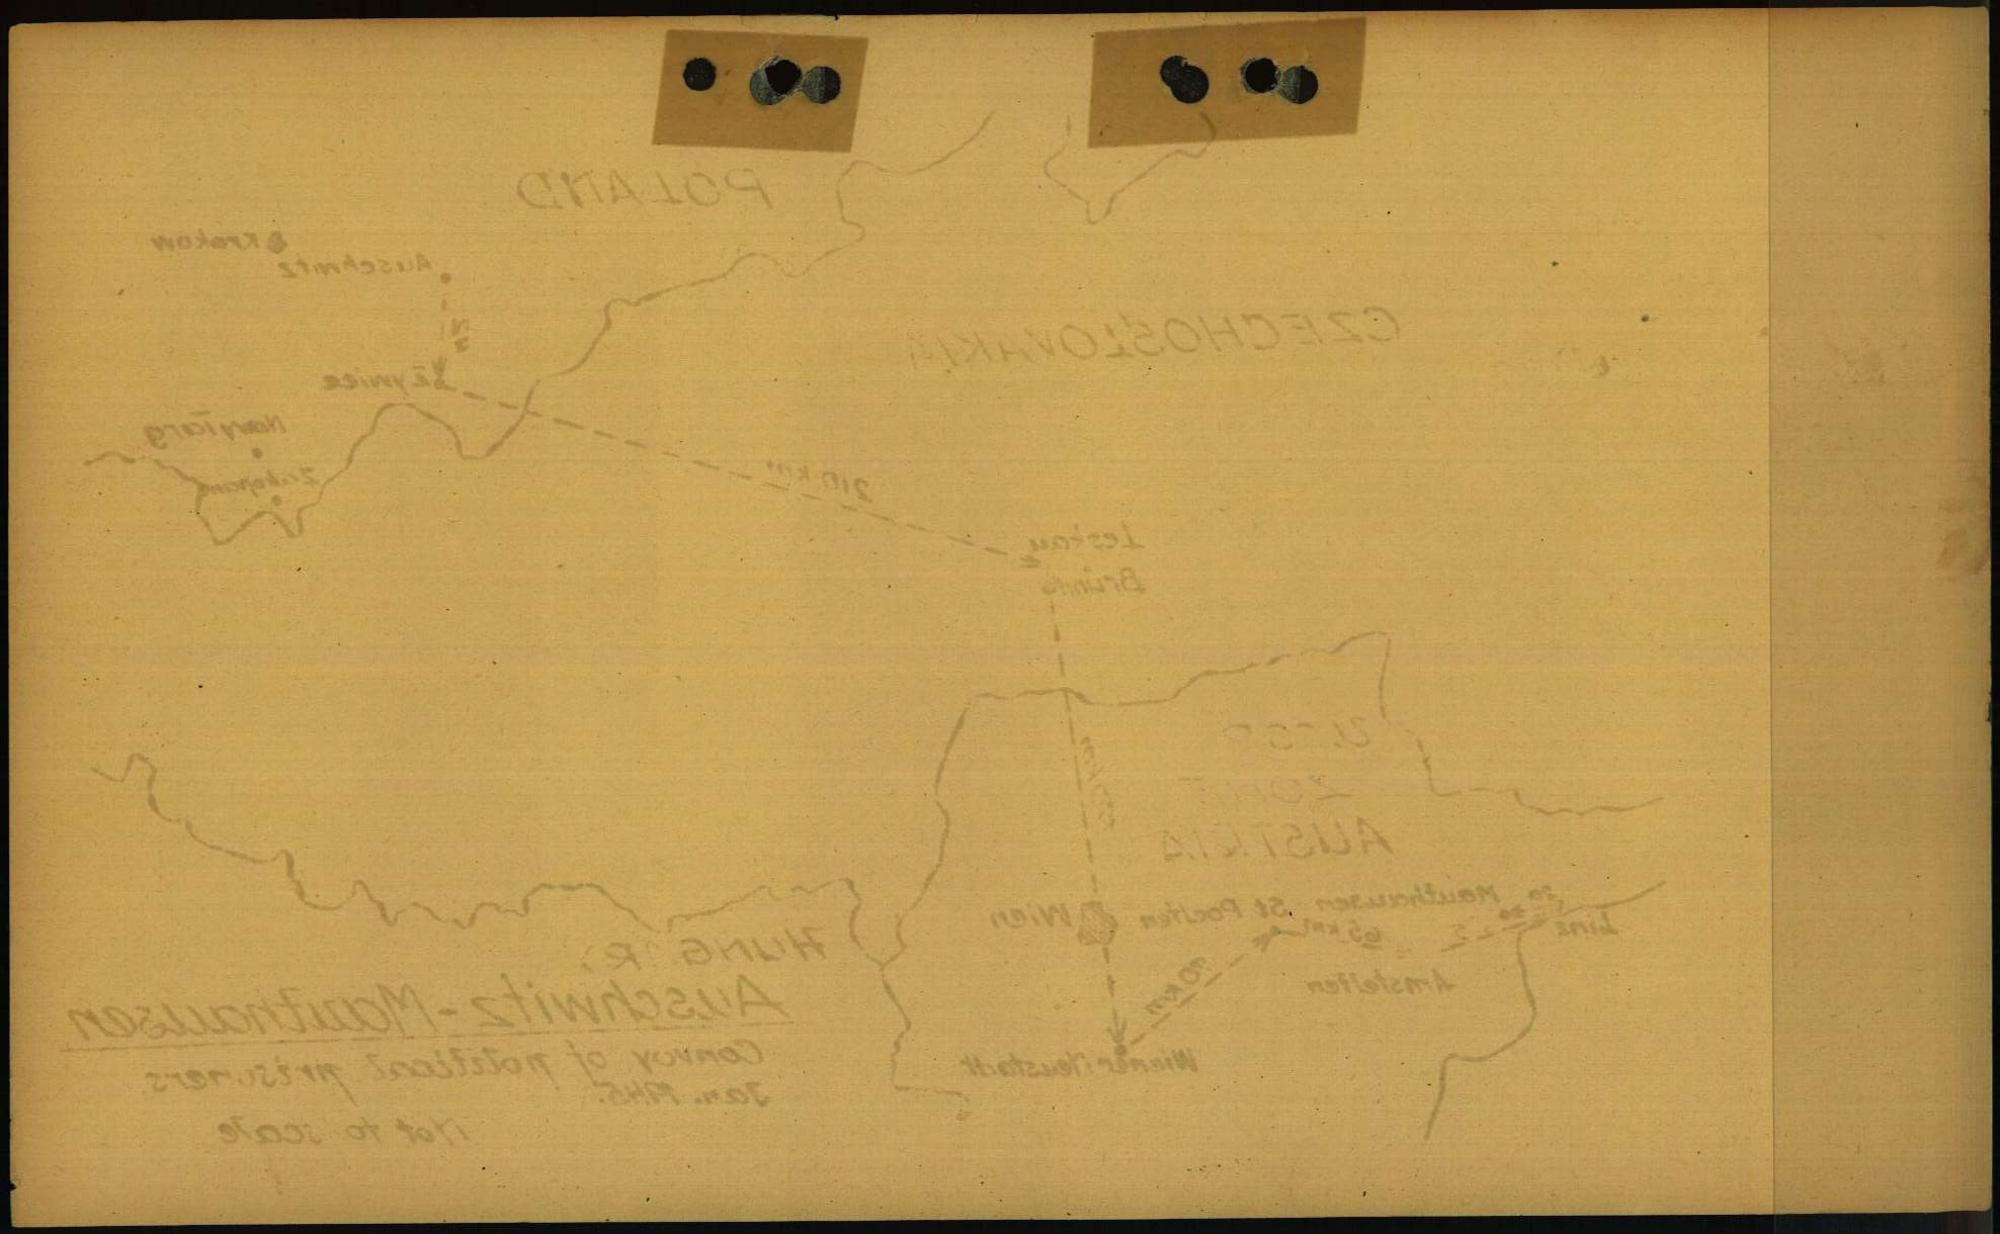 POLAND
Krakow
Auschwitz
CZECHOSLOVAKIA
Zakopane
210 km
Brünn
ZONE
AUSTRIA
Mauthausen
St Poelten
Wien
65 km
Linz
Amstetten
HUNG R.
70 km
Auschwitz-Mauthausen
Convoy of political prisoners
Jan. 1945.
Wiener Neustadt
Not to scale